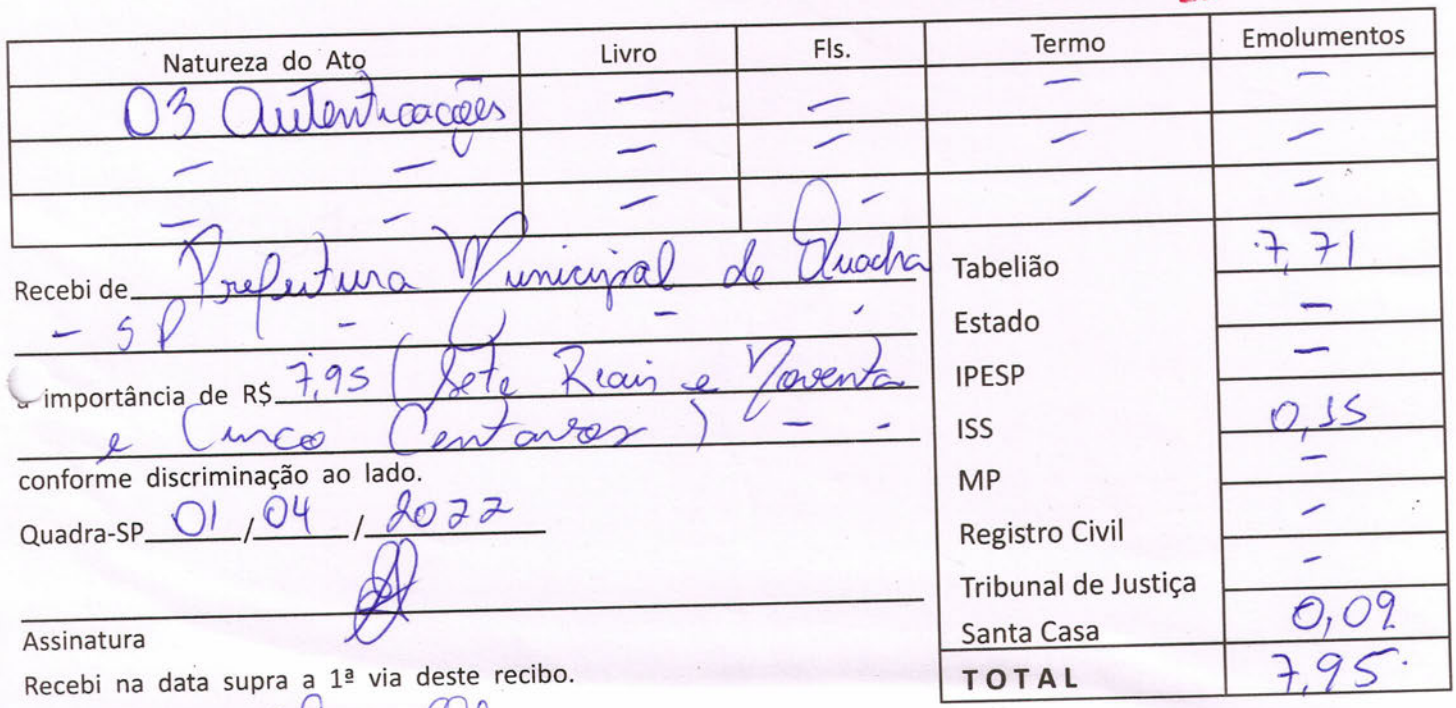 Natureza do Ato Livro Fls. Termo Emolumentos
03 Autenticações — — — —
— — — — — —
— — — — — —
Recebi de Prefeitura Municipal de Quadra
- SP - - -
a importância de R$ 7,95 (Sete Reais e Noventa
e Cinco Centavos) - -
conforme discriminação ao lado.
Quadra-SP 01/04/2022
Assinatura
Recebi na data supra a 1ª via deste recibo.
Tabelião 7,71
Estado —
IPESP —
ISS 0,15
MP —
Registro Civil —
Tribunal de Justiça —
Santa Casa 0,09
TOTAL 7,95